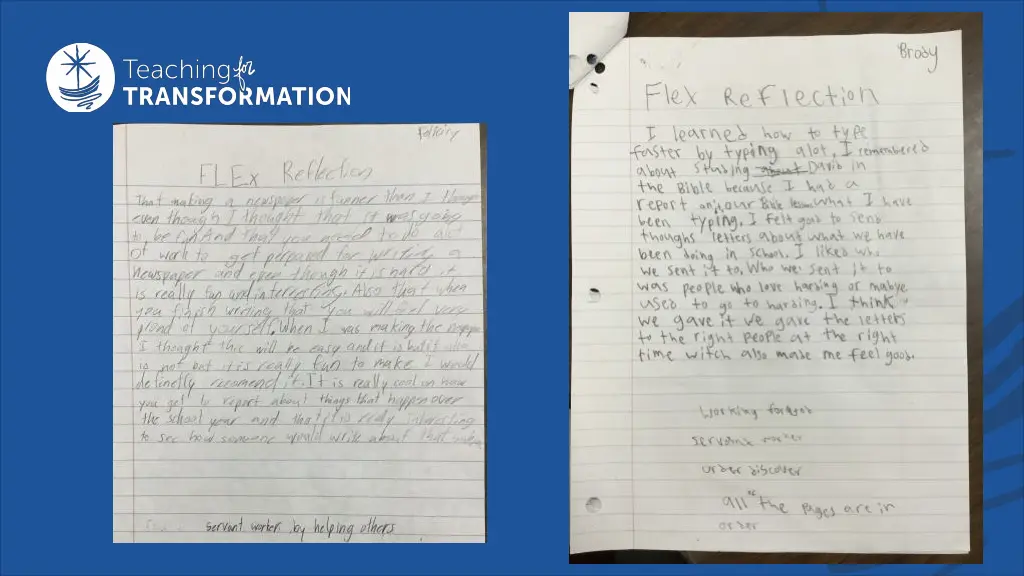 Teaching for
TRANSFORMATION
FLEx Reflection
That making a newspaper is funner than I
even though I thought that it was going
to be fun And that you need to do alot
of work to get perpared for writing a
newspaper and even though it is hard it
is really fun and interesting. Also that when
you finish writing that you will feel very
proud of your self. When I was making the
I thought this will be easy and it is but it
is not but it is really fun to make I would
definelly recomend it. It is really cool on how
you get to report about things that happen over
the school year and that it is really interesting
to see how someone would write about that
servant worker by helping others
Brody
Flex Reflection
I learned how to type
faster by typing alot, I remembered
about studing about David in
the Bible because I had a
report on our Bible lesson what I have
been typing. I felt good to send
letters about what we have
been doing in school. I liked who
we sent it to. Who we sent it to
was people who love harding or mabye
used to go to harding. I think
we gave it we gave the letters
to the right people at the right
time witch also made me feel good.
working
order discover
all the pages are in
order